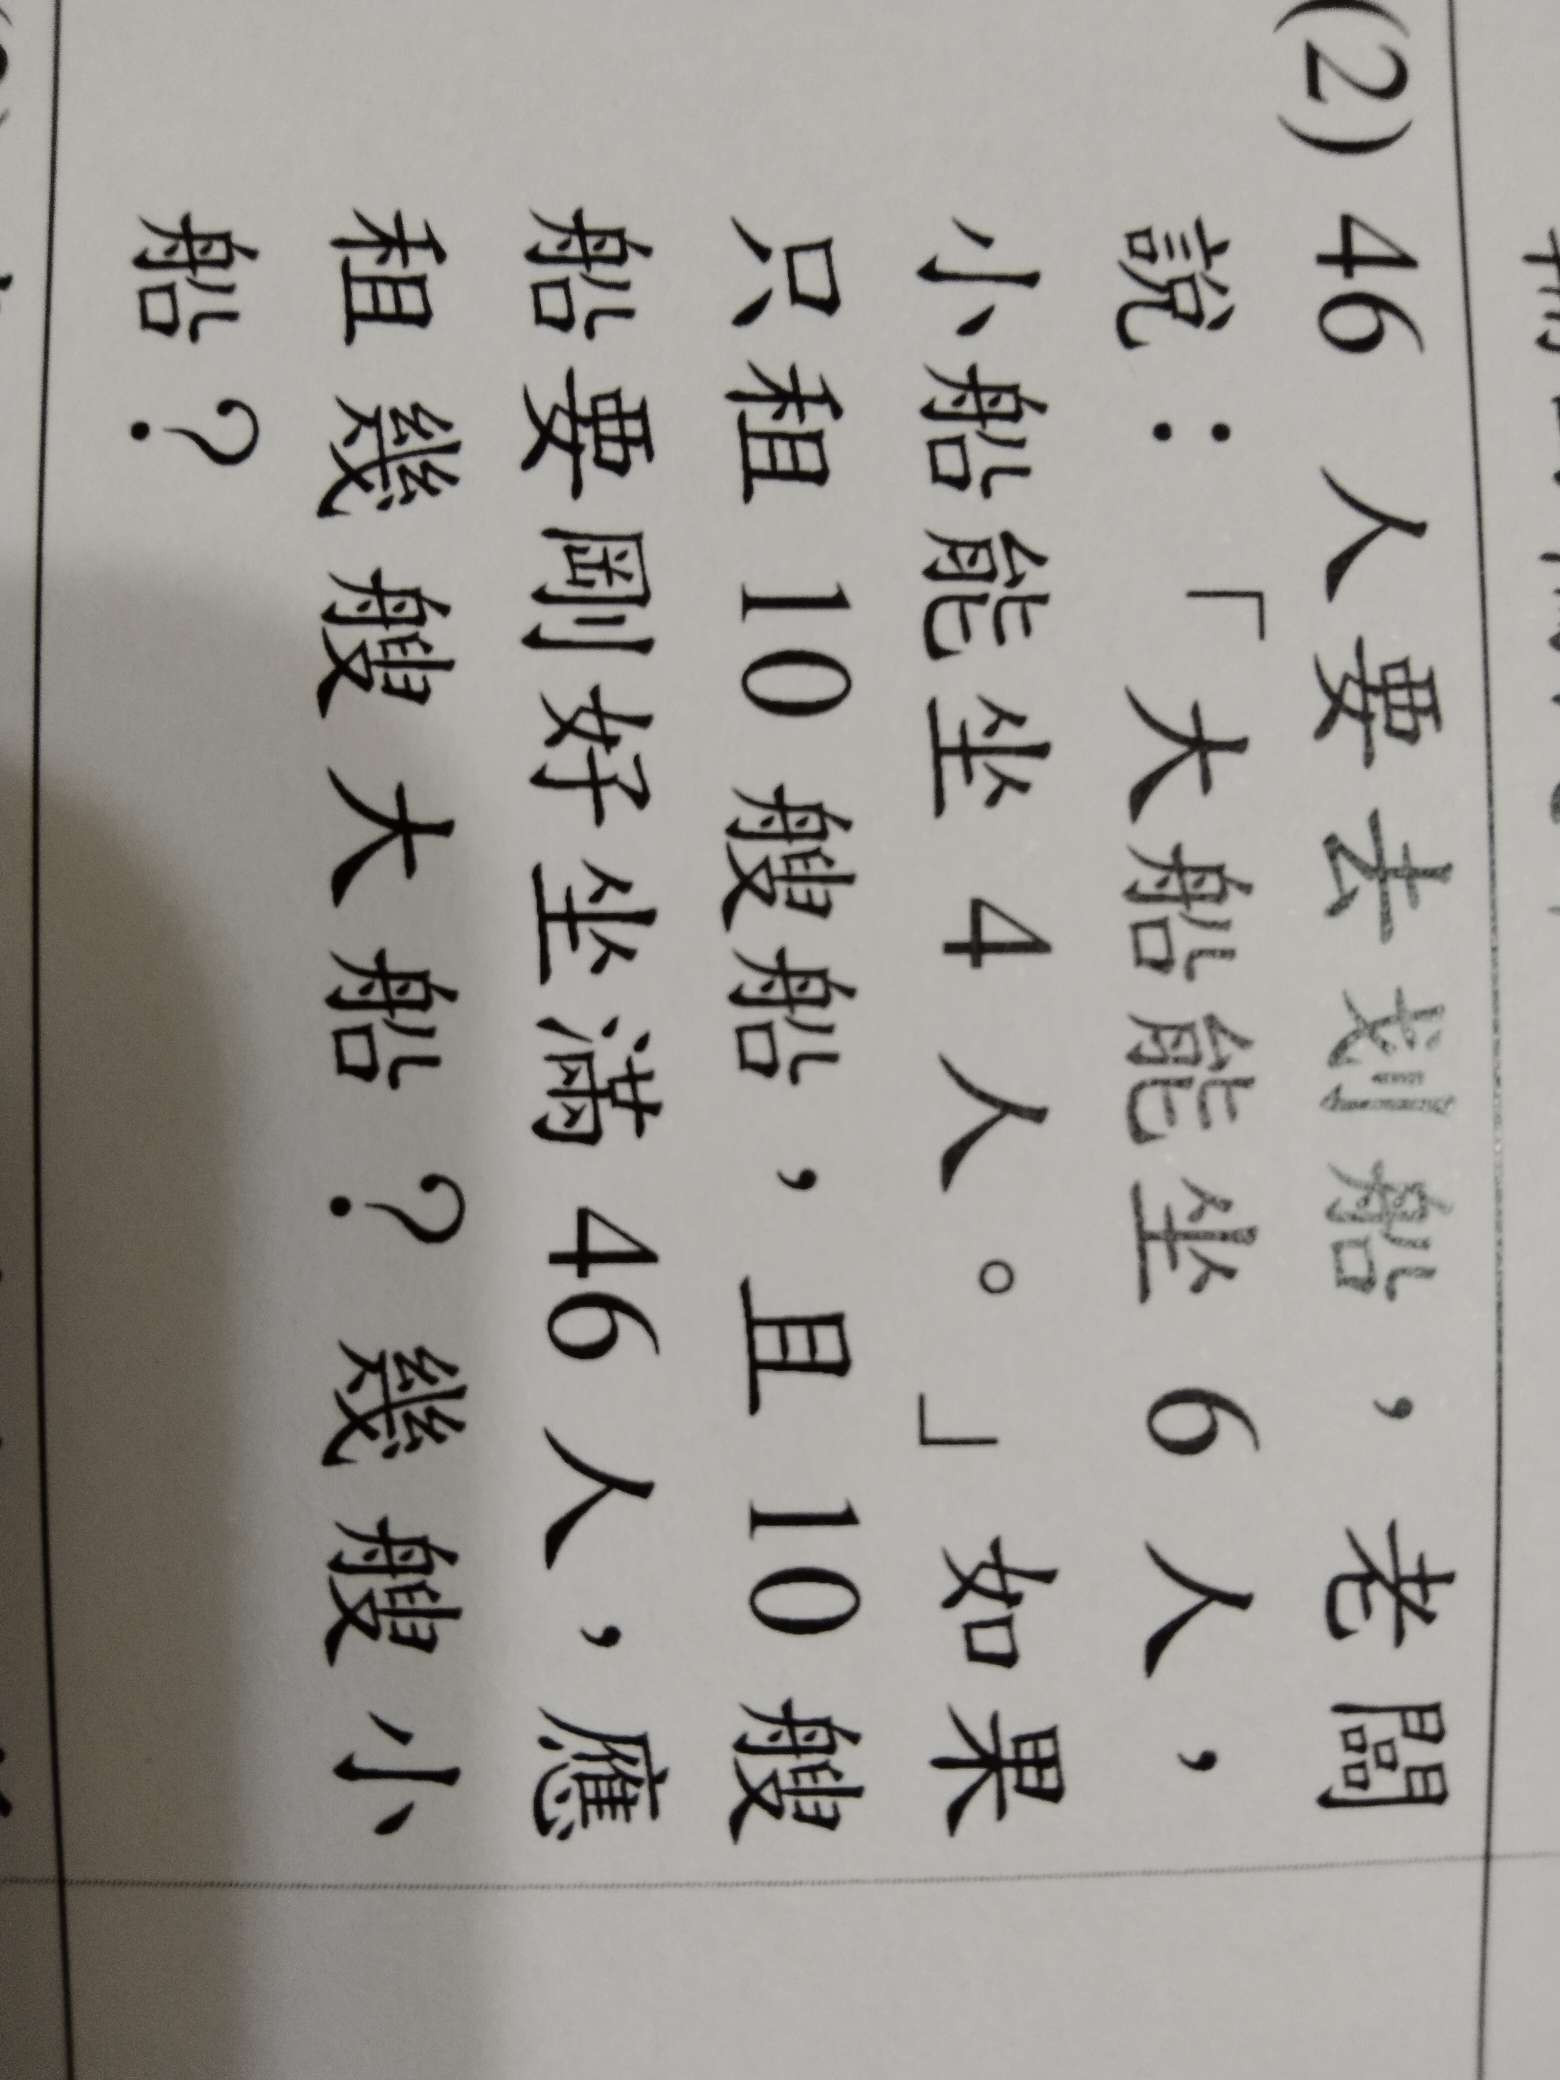 (2) 46 人要去划船，老闆
說：「大船能坐 6 人，
小船能坐 4 人。」如果
只租 10 艘船，且 10 艘
船要剛好坐滿 46 人，應
租幾艘大船？幾艘小
船？